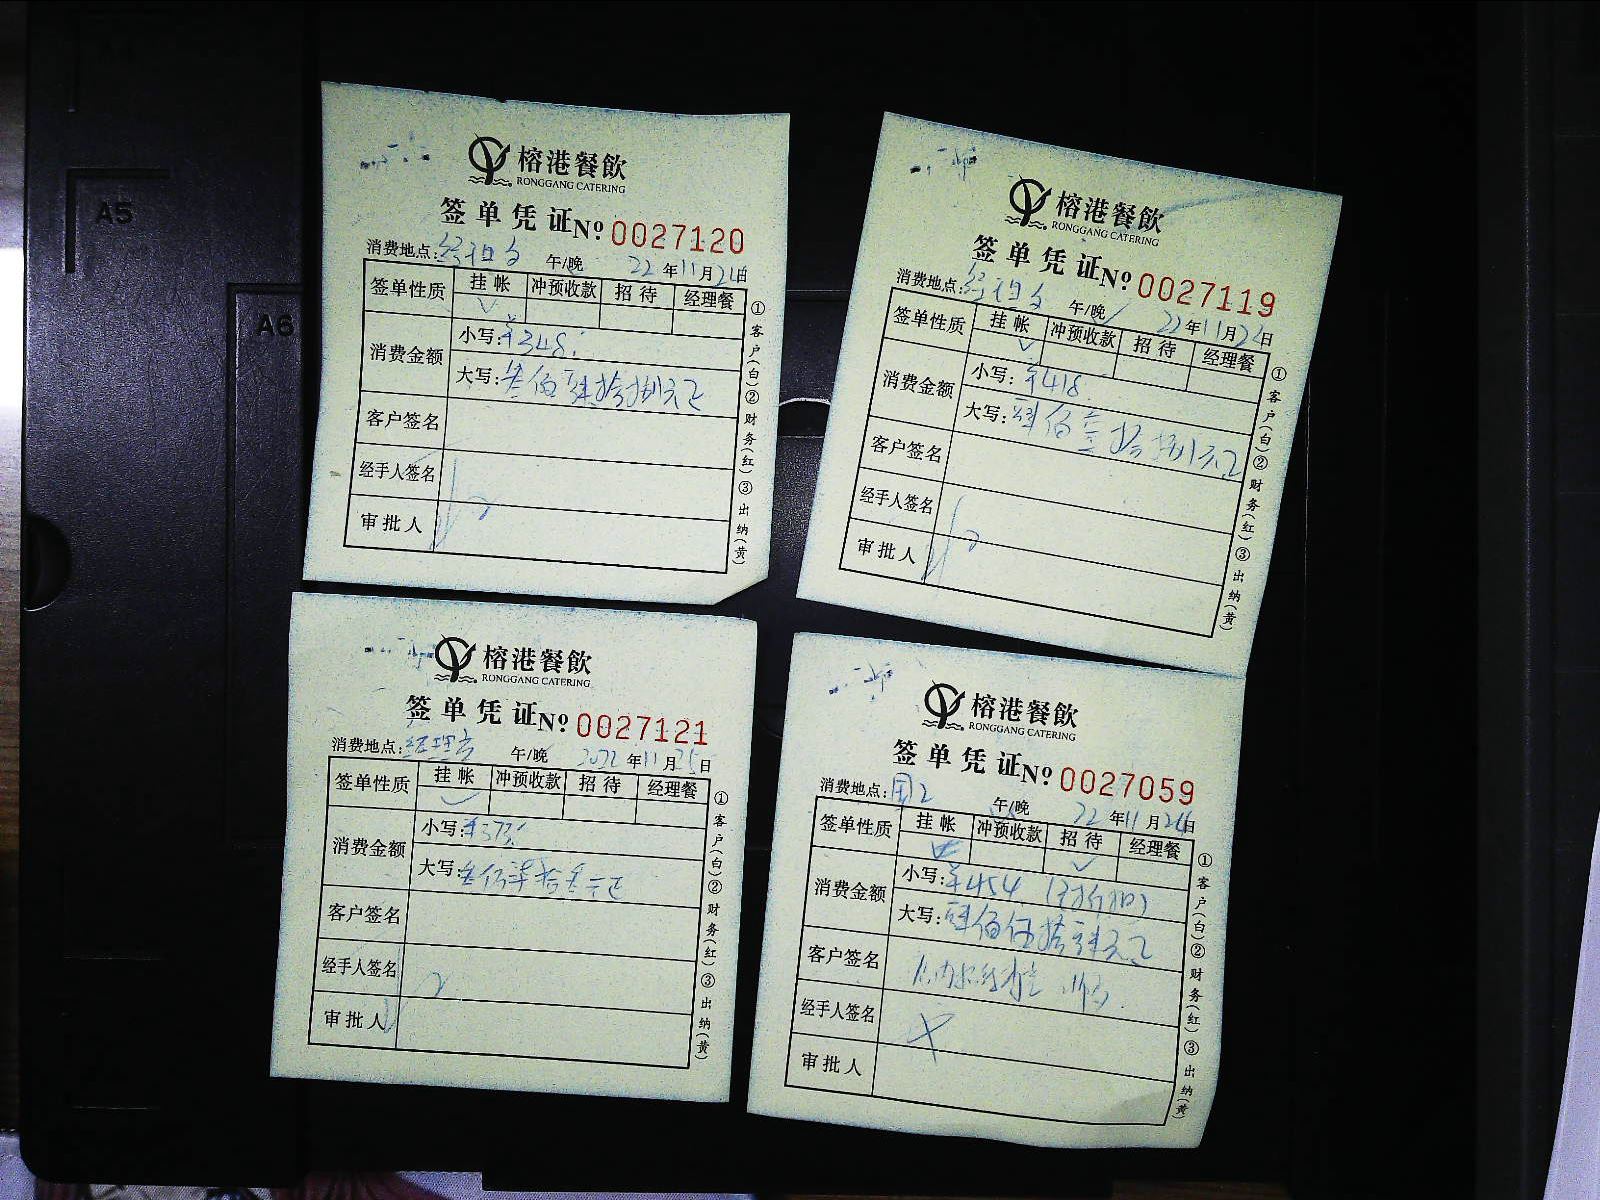 榕港餐飲
RONGGANG CATERING
签单凭证№ 0027120
消费地点: 午/晚 22年11月24日
签单性质 挂帐 冲预收款 招待 经理餐
消费金额 小写:¥348
大写:叁佰肆拾捌元正
客户签名
经手人签名
审批人
①客户(白)②财务(红)③出纳(黄)
榕港餐飲
RONGGANG CATERING
签单凭证№ 0027119
消费地点: 午/晚 22年11月24日
签单性质 挂帐 冲预收款 招待 经理餐
消费金额 小写:¥418
大写:肆佰壹拾捌元正
客户签名
经手人签名
审批人
①客户(白)②财务(红)③出纳(黄)
榕港餐飲
RONGGANG CATERING
签单凭证№ 0027121
消费地点: 午/晚 2022年11月25日
签单性质 挂帐 冲预收款 招待 经理餐
消费金额 小写:¥373
大写:叁佰柒拾叁元正
客户签名
经手人签名
审批人
①客户(白)②财务(红)③出纳(黄)
榕港餐飲
RONGGANG CATERING
签单凭证№ 0027059
消费地点:国2 午/晚 22年11月24日
签单性质 挂帐 冲预收款 招待 经理餐
消费金额 小写:¥454
大写:肆佰伍拾肆元正
客户签名
经手人签名
审批人
①客户(白)②财务(红)③出纳(黄)
A5
A6